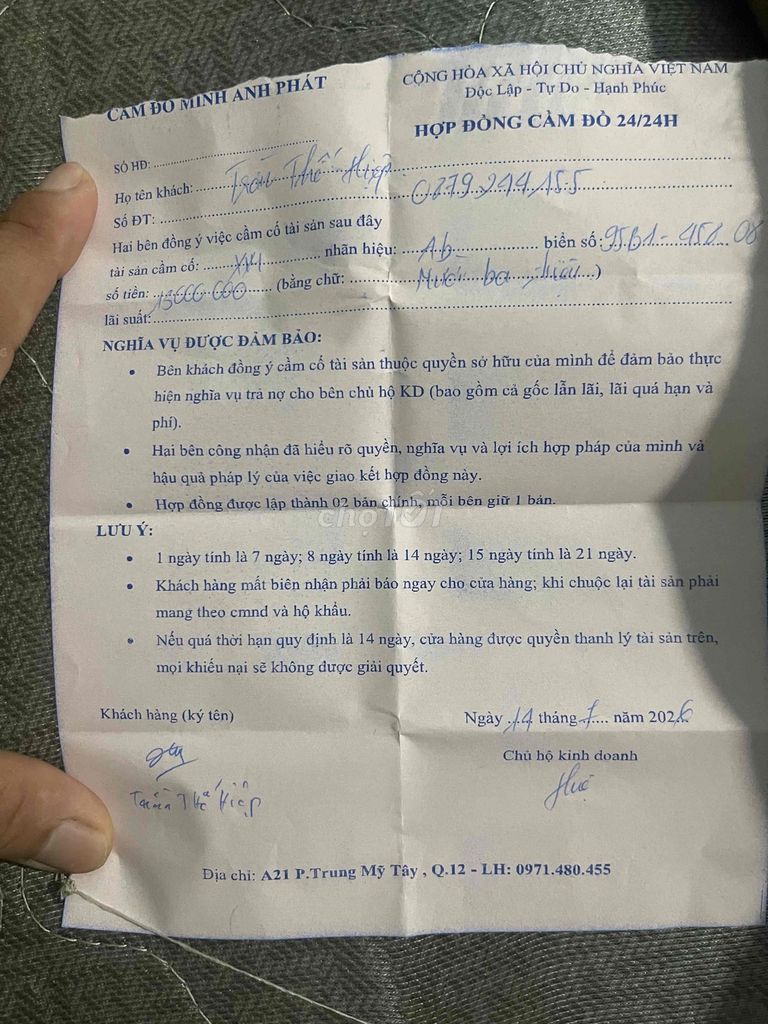 CẦM ĐỒ MINH ANH PHÁT
CỘNG HÒA XÃ HỘI CHỦ NGHĨA VIỆT NAM
Độc Lập - Tự Do - Hạnh Phúc
HỢP ĐỒNG CẦM ĐỒ 24/24H
SỐ HĐ:
Họ tên khách: Trần Thế Hiệp
Số ĐT: 0379.244.155
Hai bên đồng ý việc cầm cố tài sản sau đây
tài sản cầm cố: XM nhãn hiệu: Ab biển số: 95B1-458.08
số tiền: 13000.000 (bằng chữ: Mười ba triệu)
lãi suất:
NGHĨA VỤ ĐƯỢC ĐẢM BẢO:
• Bên khách đồng ý cầm cố tài sản thuộc quyền sở hữu của mình để đảm bảo thực
hiện nghĩa vụ trả nợ cho bên chủ hộ KD (bao gồm cả gốc lẫn lãi, lãi quá hạn và
phí).
• Hai bên công nhận đã hiểu rõ quyền, nghĩa vụ và lợi ích hợp pháp của mình và
hậu quả pháp lý của việc giao kết hợp đồng này.
• Hợp đồng được lập thành 02 bản chính, mỗi bên giữ 1 bản.
chợTỐT
LƯU Ý:
• 1 ngày tính là 7 ngày; 8 ngày tính là 14 ngày; 15 ngày tính là 21 ngày.
• Khách hàng mất biên nhận phải báo ngay cho cửa hàng; khi chuộc lại tài sản phải
mang theo cmnd và hộ khẩu.
• Nếu quá thời hạn quy định là 14 ngày, cửa hàng được quyền thanh lý tài sản trên,
mọi khiếu nại sẽ không được giải quyết.
Khách hàng (ký tên)
Ngày 14 tháng 1 năm 2026
Chủ hộ kinh doanh
Trần Thế Hiệp
Huệ
Địa chỉ: A21 P.Trung Mỹ Tây , Q.12 - LH: 0971.480.455